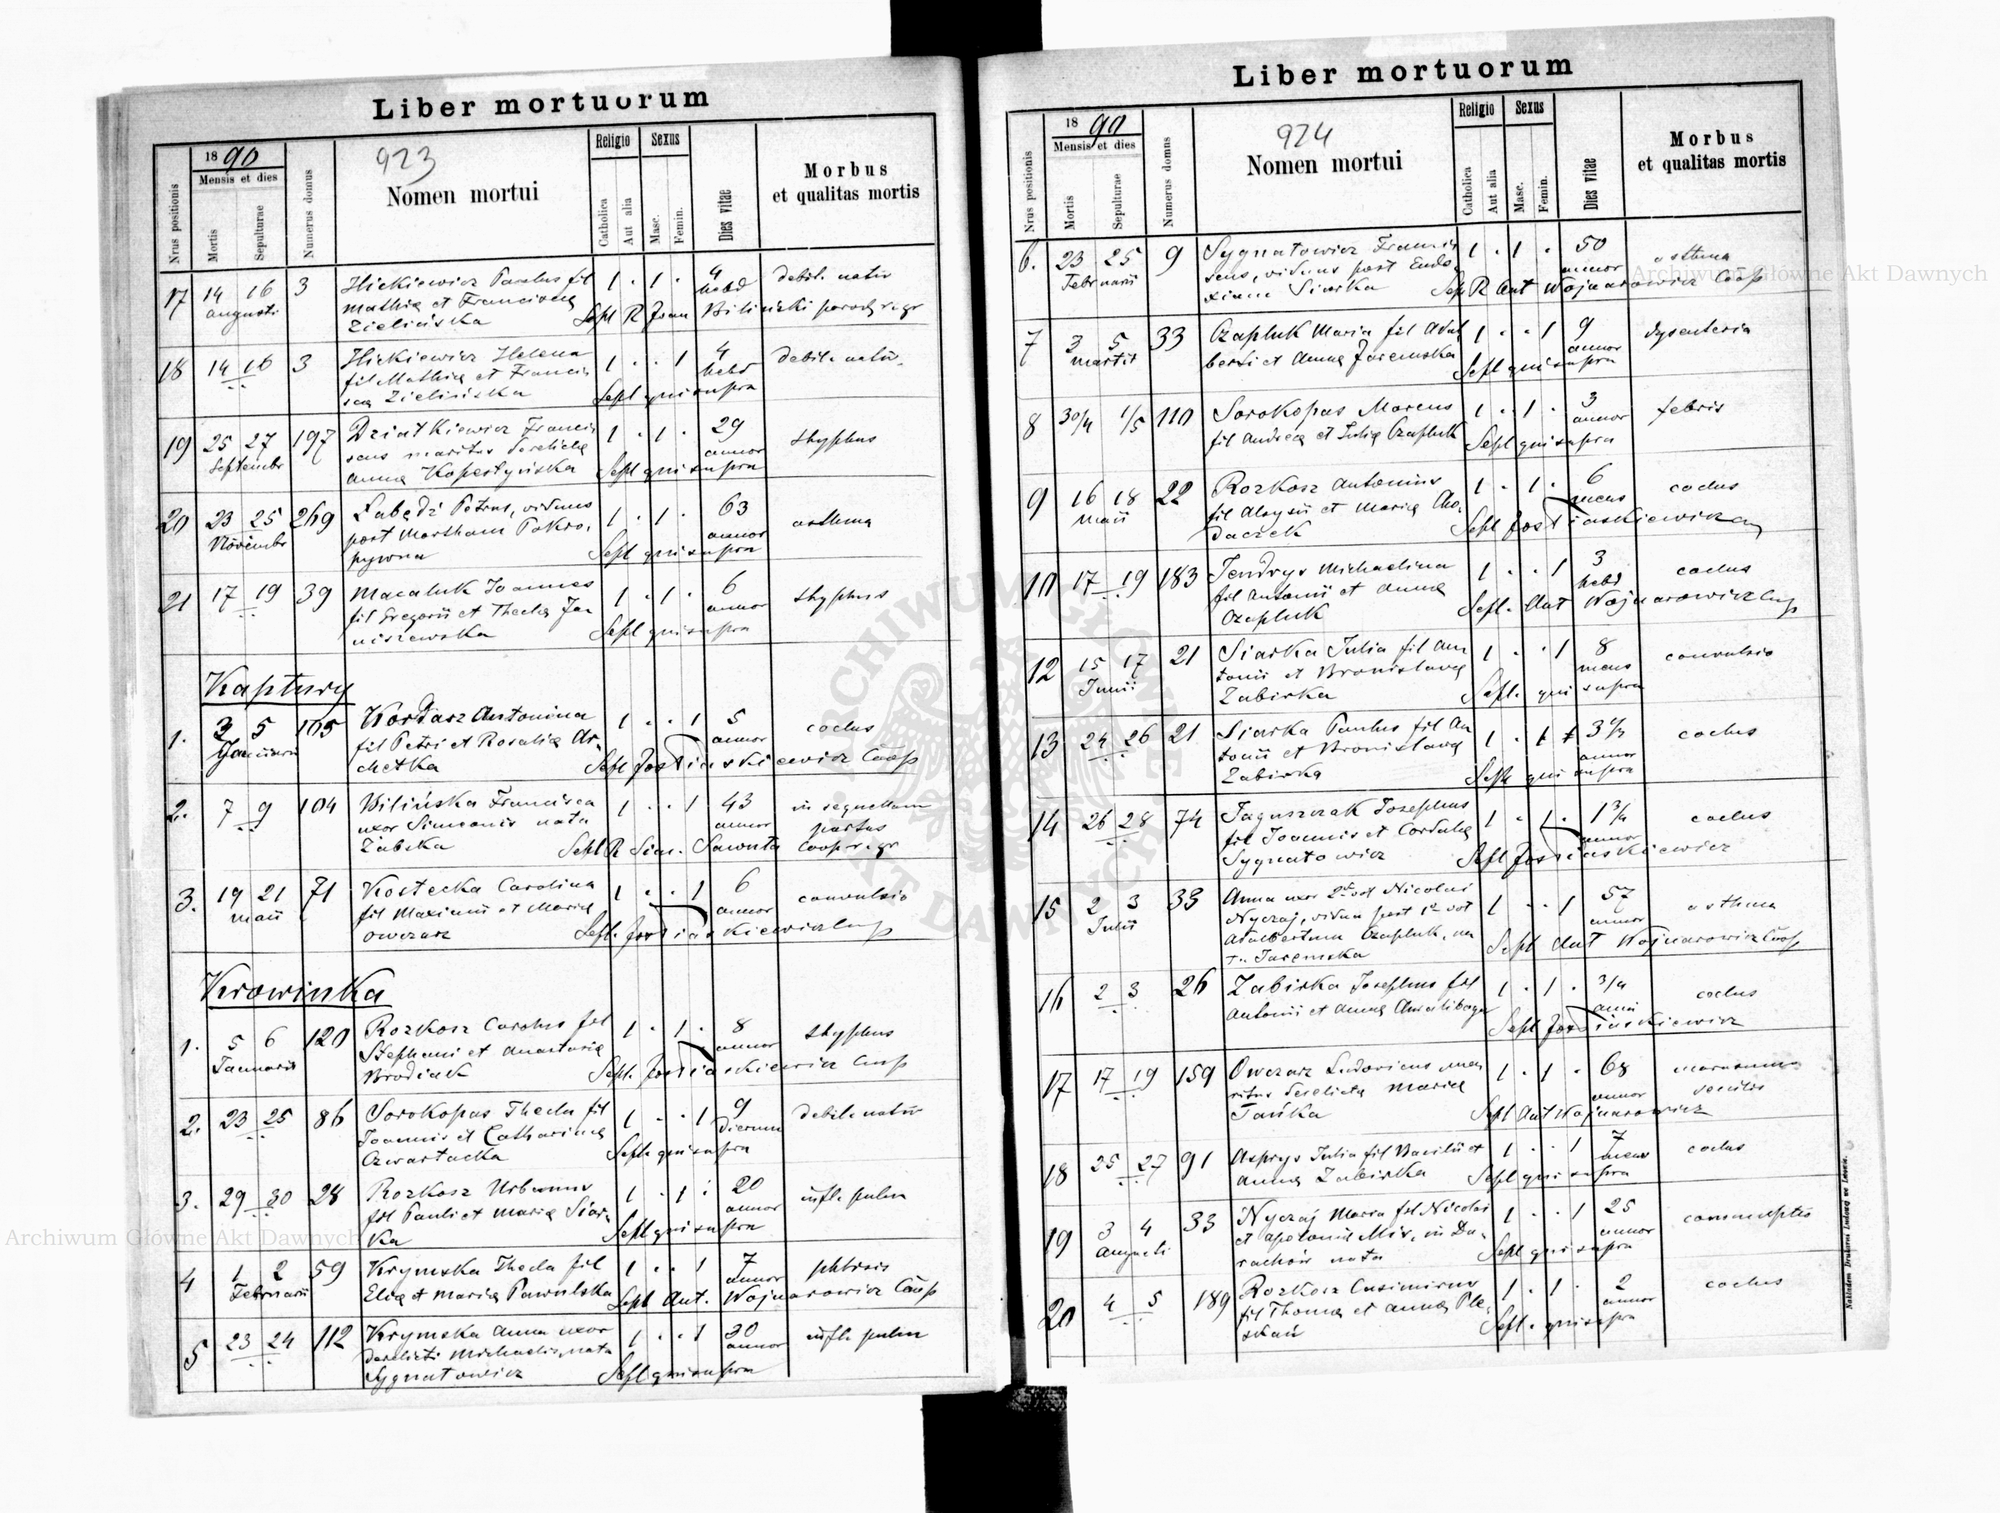 Liber mortuorum
Nrus positionis
1890
Mensis et dies
Mortis
Sepulturae
Numerus domus
923
Nomen mortui
Religio
Catholica
Aut alia
Sexus
Masc.
Femin.
Dies vitae
Morbus
et qualitas mortis
17 14 16 3 Hickiewicz Paulus fil 1 · 1 · 4 debil. nativ
augusti Mathiae et Franciscae hebd
Zielińska Sepl R Joan Biliński paroch r. gr
18 14 16 3 Hickiewicz Helena 1 · · 1 4 debil. nativ
fil Mathiae et Francis hebd
cae Zielińska Sepl qui supra
19 25 27 197 Dziatkiewicz Francis 1 · 1 · 29 thyphus
Septembr cus maritus derelictae annor
Anna Kopestyńska Sepl qui supra
20 23 25 269 Łabędź Petrus, viduus 1 · 1 · 63 asthma
Novembr post Martham Pokro annor
pywna Sepl qui supra
21 17 19 39 Macaluk Joannes 1 · 1 · 6 thyphus
fil Gregorii et Theclae Ja annor
niszewska Sepl qui supra
Kaptury
1. 3 5 105 Kordasz Antonina 1 · · 1 5 coclus
Januarii fil Petri et Rosaliae Ar- annor
chetka Sepl Jos Tiaskiewicz Coop
2. 7 9 104 Bilińska Francisca 1 · · 1 43 in sequellam
uxor Simeonis nata annor partus
Żabska Sepl R Sim. Sawuta Coop r. gr
3. 19 21 71 Kostecka Carolina 1 · · 1 6 convulsio
Maii fil Maximi et Mariae annor
Owczarz Sepl. Jos Tiaskiewicz Coop
Krowinka
1. 5 6 120 Rozkosz Carolus fil 1 · 1 · 8 thyphus
Januarii Stephani et Anastasiae annor
Brodiak Sepl. Jos Tiaskiewicz Coop
2. 23 25 86 Sorokopas Thecla fil 1 · · 1 9 debil. nativ
Joannis et Catharinae dierum
Czwartacka Sepl. qui supra
3. 29 30 28 Rozkosz Urbanus 1 · 1 · 20 infl. pulm
fil Pauli et Mariae Siar- annor
ka Sepl qui supra
4 1 2 59 Krymska Thecla fil 1 · · 1 7 phtisis
Februarii Eliae et Mariae Pawulska annor
Sepl Ant. Wojnarowicz Coop
5 23 24 112 Krymska Anna uxor 1 · · 1 30 infl. pulm
derelicti Michaelis, nata annor
Sygnatowicz Sepl qui supra
Liber mortuorum
Nrus positionis
1890
Mensis et dies
Mortis
Sepulturae
Numerus domus
924
Nomen mortui
Religio
Catholica
Aut alia
Sexus
Masc.
Femin.
Dies vitae
Morbus
et qualitas mortis
6. 23 25 9 Sygnatowicz Francis 1 · 1 · 50 asthma
Februarii cus, viduus post Eudo annor
xiam Siarka Sepl R Ant Wojnarowicz Coop
7 3 5 33 Czapluk Maria fil Adal 1 · · 1 9 dysenteria
Martii berti et Anna Jaremska annor
Sepl qui supra
8 30/4 1/5 110 Sorokopas Marcus 1 · 1 · 3 febris
fil Andreae et Juliae Czapluk annor
Sepl qui supra
9 16 18 22 Rozkosz Antonius 1 · 1 · 6 coclus
Maii fil Aloysii et Mariae Cho- mens
daczek Sepl Jos Tiaskiewicz
10 17 19 183 Jendrys Michaelina 1 · · 1 3 coclus
fil Antonii et Annae hebd
Czapluk Sepl. Ant Wojnarowicz Coop
12 15 17 21 Siarka Julia fil An 1 · · 1 8 convulsio
Junii tonii et Bronislavae mens
Zabirka Sepl. qui supra
13 24 26 21 Siarka Paulus fil An 1 · 1 3 1/2 coclus
tonii et Bronislavae annor
Zabirka Sepl qui supra
14 26 28 74 Jaguszczak Josephus 1 · 1 · 1 3/4 coclus
fil Joannis et Cordulae annor
Sygnatowicz Sepl Jos Tiaskiewicz
15 2 3 33 Anna uxor 2do vot Nicolai 1 · · 1 57 asthma
Julii Nyczaj, vidua post 1o vot annor
Adalbertum Czapluk, na
ta Jaremska Sepl Ant Wojnarowicz Coop
16 2 3 26 Zabirka Josephus fil 1 · 1 · 3/4 coclus
Antonii et Annae anni
Sepl Jos Tiaskiewicz
17 17 19 159 Owczarz Ludovicus ma 1 · 1 · 68 marasmus
ritus derelictae Mariae annor senilis
Tańka Sepl Ant Wojnarowicz
18 25 27 91 Asprys Julia fil Basilii et 1 · · 1 7 coclus
Anna Zabirka mens
Sepl qui supra
19 3 4 33 Nyczaj Maria fil Nicolai 1 · · 1 25 consumptio
Augusti et Apoloniae Mis, in Da annor
rachów nata Sepl qui supra
20 4 5 189 Rozkosz Casimirus 1 · 1 · 2 coclus
fil Thomae et Annae Ple annor
skań Sepl. qui supra
Nakładem Drukarni Ludowej we Lwowie.
Archiwum Główne Akt Dawnych
Archiwum Główne Akt Dawnych
ARCHIWUM GŁÓWNE AKT DAWNYCH